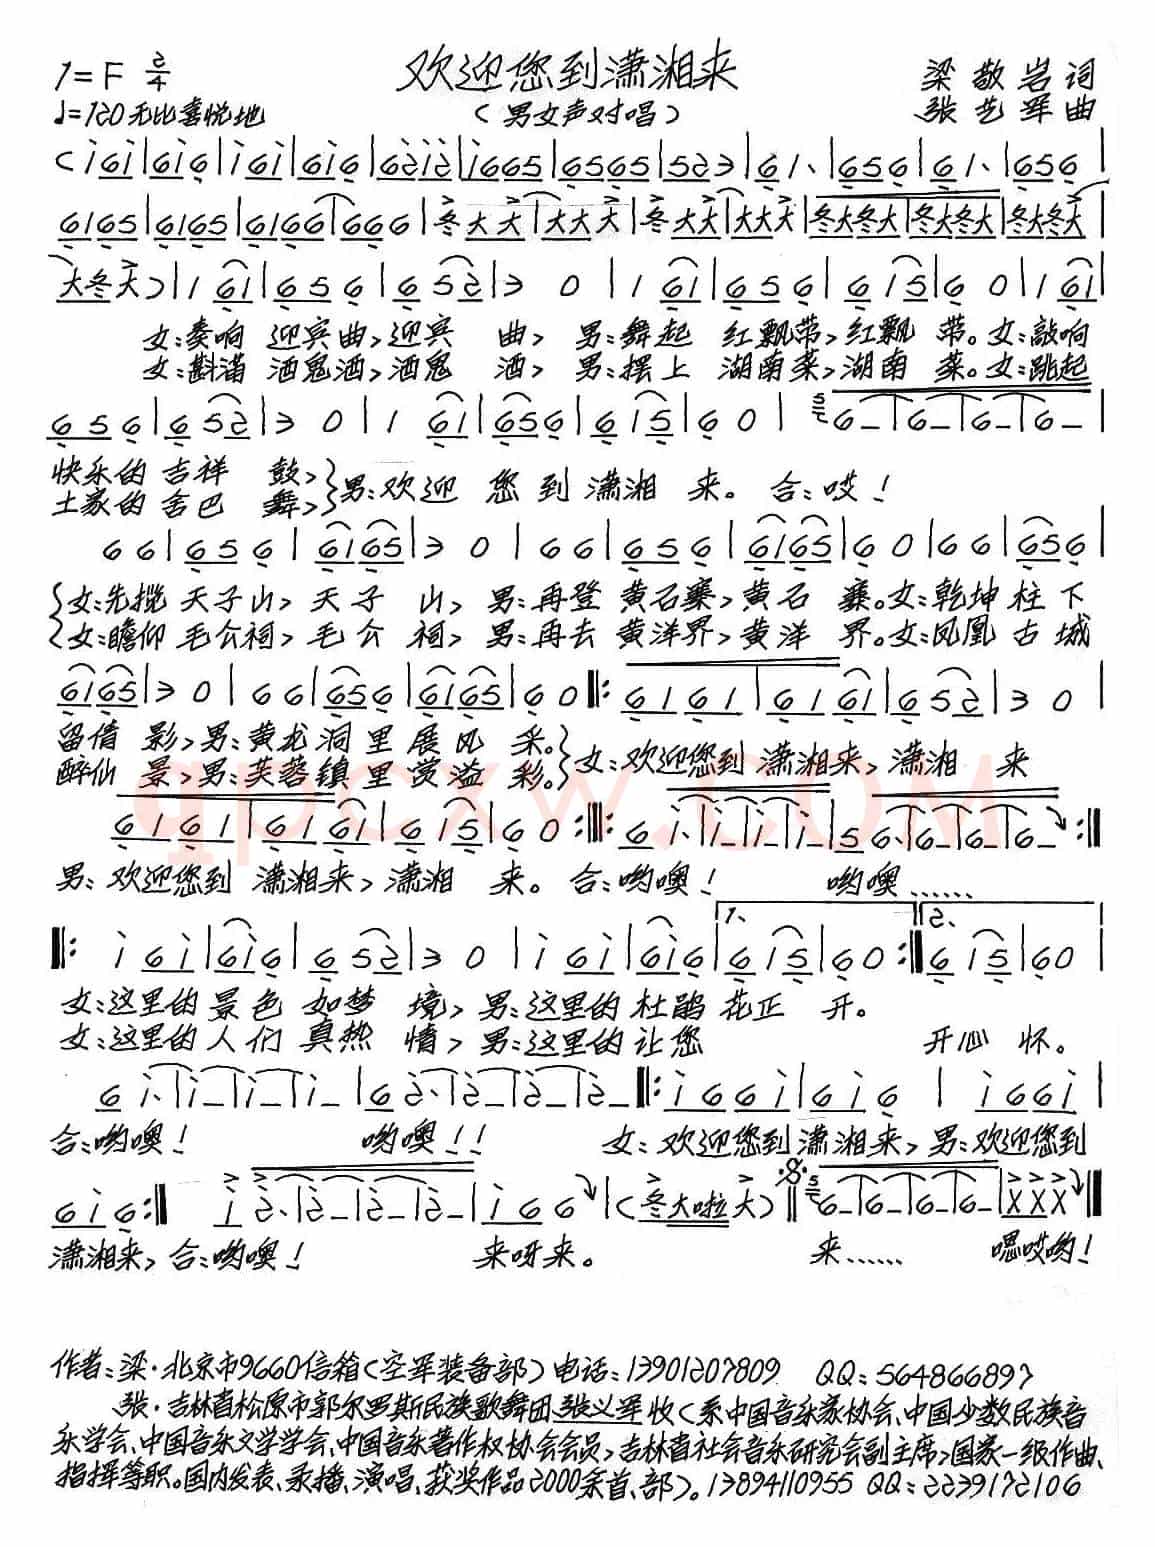 欢迎您到潇湘来
1=F 2/4
梁敬岩 词
♩=120 无比喜悦地
（男女声对唱）
张艺军 曲
(i 6i|6i6|i6i|6i6|62i2|i665|6565|523|61、|656|61、|656|
6165|6165|6166|666|冬大大|大大大|冬大大|大大大|冬大冬大|冬大冬大|冬大冬大|
大冬大)|1 61|656|652|3 0|1 61|656|615|6 0|1 61|
女:奏响 迎宾曲,迎宾 曲, 男:舞起 红飘带,红飘 带。女:敲响
女:斟满 酒鬼酒,酒鬼 酒, 男:摆上 湖南菜,湖南 菜。女:跳起
656|652|3 0|1 61|656|615|6 0|6–|6–|6–|6–|
快乐的 吉祥 鼓,
土家的 舍巴 舞,
男:欢迎 您到 潇湘 来。合:哎!
6 6|656|6165|3 0|6 6|656|6165|6 0|6 6|656|
女:先揽 天子山,天子 山, 男:再登 黄石寨,黄石 寨。女:乾坤 柱下
女:瞻仰 毛公祠,毛公 祠, 男:再去 黄洋界,黄洋 界。女:凤凰 古城
6165|3 0|6 6|656|6165|6 0‖:6161|6161|652|3 0|
留倩 影,男:黄龙 洞里 展风 采。
醉仙 景,男:芙蓉 镇里 赏溢 彩。
女:欢迎您到 潇湘来,潇湘 来
qpcxw.com
6161|6161|615|6 0:‖:6 i、|i–|i–|i–|56、|6–|6–|6–:‖
男:欢迎您到 潇湘来,潇湘 来。合:哟噢! 哟噢……
‖:i 6i|6i6|652|3 0|i 6i|6i6|1、615|6 0:‖2、615|60|
女:这里的 景色 如梦 境,男:这里的 杜鹃 花正 开。
女:这里的 人们 真热 情,男:这里的 让您 开心 怀。
6 i、|i–|i–|i–|6 2、|2–|2–|2–‖:i66i|6i6|i66i|
合:哟噢! 哟噢!! 女:欢迎您到 潇湘来,男:欢迎您到
6i6:‖i 2、|2–|2–|2–|i66|(冬大啦大)‖6–|6–|6–|6–|XXX‖
潇湘来,合:哟噢! 来呀来。 来…… 嗯哎哟!
作者:梁·北京市9660信箱(空军装备部)电话:13901207809 QQ:564866897
张·吉林省松原市郭尔罗斯民族歌舞团张义军收(系中国音乐家协会、中国少数民族音
乐学会、中国音乐文学学会、中国音乐著作权协会会员,吉林省社会音乐研究会副主席,国家一级作曲、
指挥等职。国内发表、录播、演唱、获奖作品2000余首、部)。13894110955 QQ:2239172106